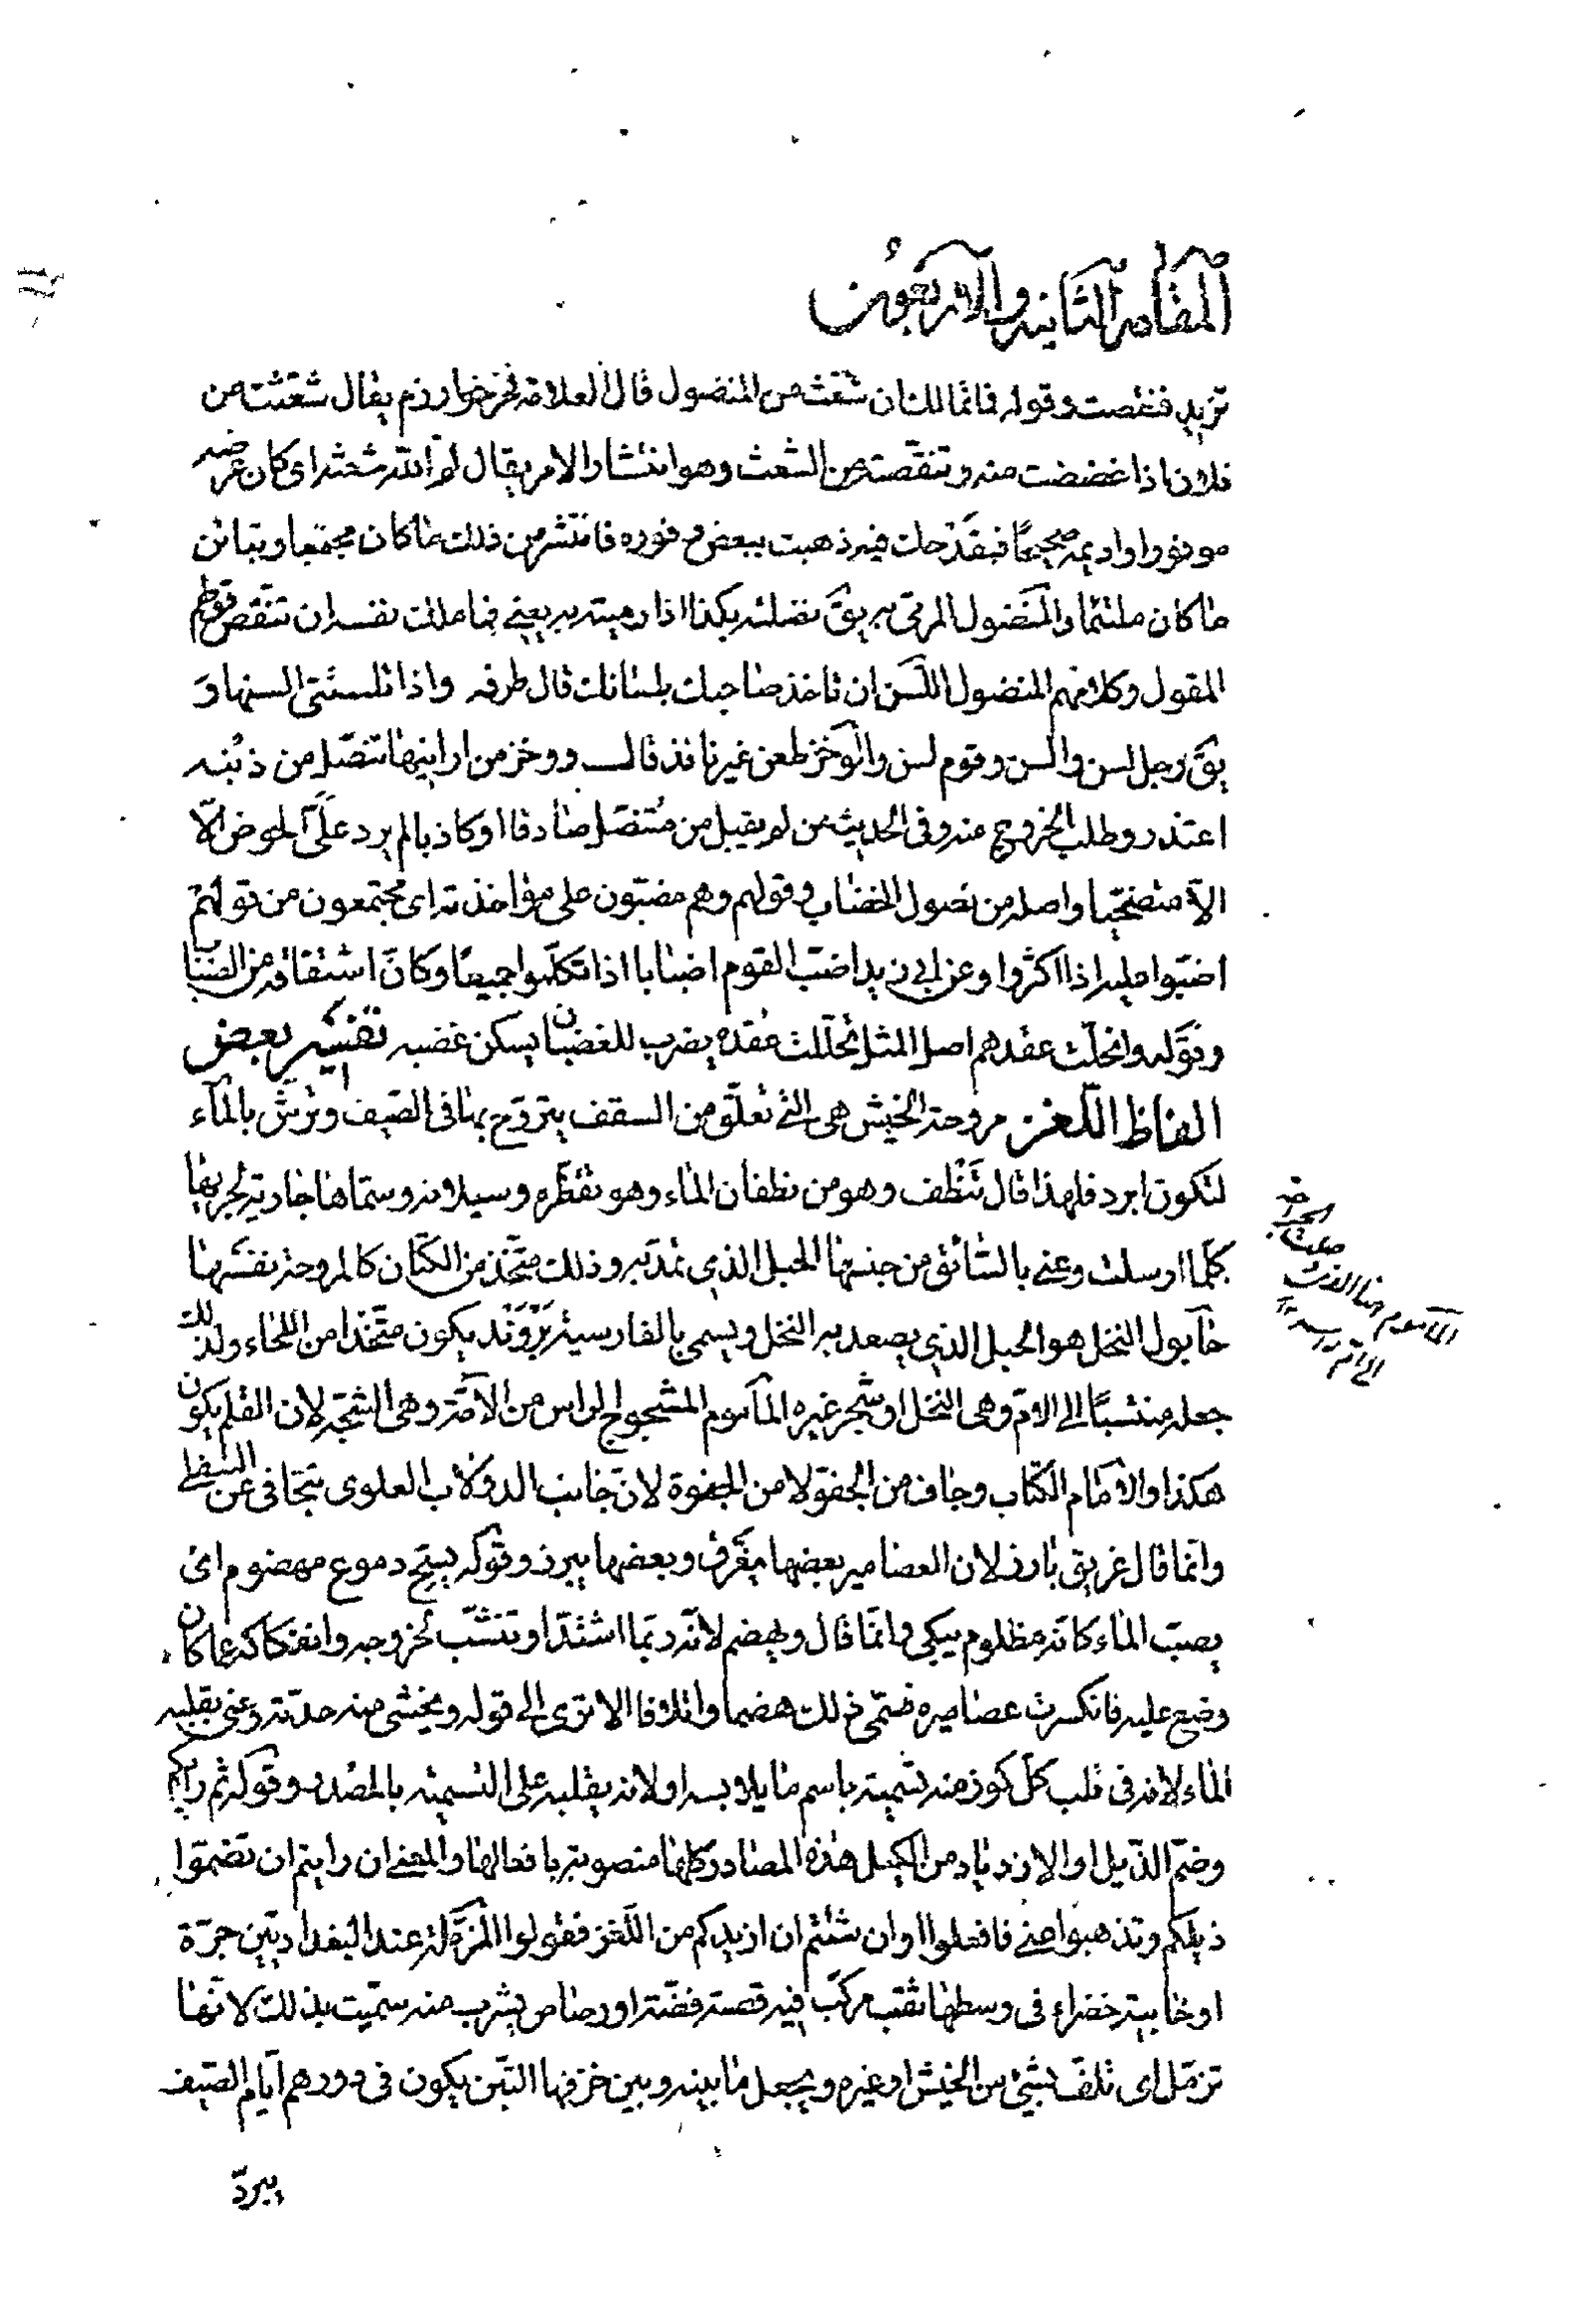 المقامة الثانية والاربعون
تزيد فنقصت وقوله فانما لك ان شعث من المنضول قال العلامة فخر خوارزم يقال شعثت من
فلان اذا غضضت منه وتنقصته من الشعث وهو انتشار الامر يقال لم الله شعثه اى كان عرضه
موفورا واديمه صحيحًا فبقدحك فيه ذهبت ببعض وفوره فانتشر من ذلك ما كان مجتمعا وتباين
ما كان ملتئما والمنضول المرمّى به يقَ نضلته بكذا اذا رميته به يعنى فما ملك نفسه ان تنقص قولهم
المقول وكلامهم المنضول اللسن ان تاخذ صاحبك بلسانك قال طرفه واذا تلسننى السنها وَ
يقَ رجل لسن والسن وقوم لسن والوخز طعن غير نافذ قال ووخز من ارانيها تنصّل من ذنبه
اعتذر وطلب الخروج منه وفى الحديث من لم يقبل من متنصّل صادقا او كاذبا لم يرد علَىّ الحوض الّا
الّا متضيحا واصله من نصول الخضاب وقولهم وهم مضبّون على مؤاخذته اى مجتمعون من قولهم
اضبّوا عليه اذا اكثروا وعن ابى زيد اضبّ القوم اضبابا اذا تكلّموا جميعًا وكانّ اشتقاقه من الضباب
وقوله وانحلّت عقدهم اصل المثل تحلّلت عقده يضرب للغضبان يسكن غضبه تفسير بعض
الفاظ اللّغز مروحة الخيش هى التى تعلّق من السقف يتروّح بها فى الصيف وترشّ بالمآء
لتكون ابرد فلهذا قال تنظف وهو من نطفان الماء وهو تقطّره وسيلانه وسمّاها جارية لجريها
كلّما ارسلت وعنى بالسّائق من جنسها الحبل الذي تمدّ به وذلك متّخذ من الكتّان كالمروحة نفسها
حابول النخل هو الحبل الذي يصعد به النخل ويسمى بالفارسية پَرْوَنْد يكون متّخذا من اللحاء ولذلك
جعله منتسبًا الى الامّ وهى النخل او شجر غيره المأموم المشجوج الراس من الآمّة وهى الشجّة لان القلم يكون
هكذا والامام الكتاب وجاف من الجفوّ لا من الجفوة لانّ جانب الدولاب العلوى يتجافى عن السفلى
وانما قال غريق بارز لان العصامير بعضها يغرق وبعضها يبرز وقوله يسحّ دموع مهضوم اى
يصبّ الماء كانّه مظلوم يبكى وانّما قال ويهضم لانّه ربّما اشتدّ او تنشّب لخروجه وانفكاكه عما كان
وضع عليه فانكسرت عصاميره فسمّى ذلك هضما واتلافا الا ترى الى قوله ويخشى منه حدّته وعنى بقلبه
الماء لانه فى قلب كلّ كوز منه تسمية باسم ما يلابسه او لانه يقلبه على التسمية بالمصدر وقوله ثم رايكم
وضمّ الذّيل او الازدياد من الكيل هذه المصادر كلها منصوبة بافعالها والمعنى ان رايتم ان تضمّوا
ذيلكم وتذهبوا عنى فافعلوا وان شئتم ان ازيدكم من اللّغز فقولوا المزمّلة عند البغداديّين جرّة
او خابية خضراء فى وسطها ثقب مركّب فيه قصبة فضّة او رصاص يشرب منه سمّيت بذلك لانّها
تزمّل اى تلفّ بشئ من الخيش او غيره ويجعل ما بينه وبين خزفها التبن يكون فى دورهم ايام الصّيف
يبرّد